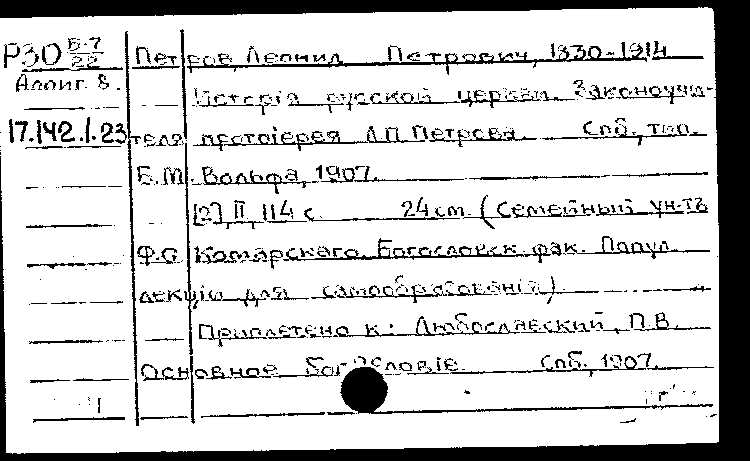 Р30 Б-7/22 Петров, Леонид Петрович, 1830-1914
Аллиг. 8.
Исторія русской церкви. Законоучи-
17.142.1.23 теля протоіерея Л.П. Петрова. Спб., тип.
Б.М. Вольфа, 1907.
[2], II, 114 с. 24 см. (Семейный ун-тъ
Ф.С. Комарского. Богословск. фак. Попул.
лекціи для самообразованія).
Приплетено к: Любославский, П.В.
Основное Богословіе. Спб., 1907.